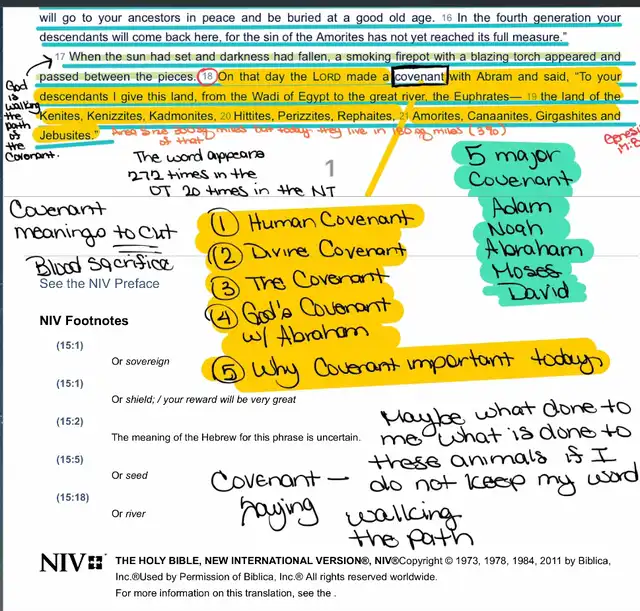 will go to your ancestors in peace and be buried at a good old age. 16 In the fourth generation your
descendants will come back here, for the sin of the Amorites has not yet reached its full measure."
17 When the sun had set and darkness had fallen, a smoking firepot with a blazing torch appeared and
passed between the pieces. 18 On that day the LORD made a covenant with Abram and said, "To your
descendants I give this land, from the Wadi of Egypt to the great river, the Euphrates— 19 the land of the
Kenites, Kenizzites, Kadmonites, 20 Hittites, Perizzites, Rephaites, 21 Amorites, Canaanites, Girgashites and
Jebusites."
God
is
walking
the
path
of
the
Covenant.
sq miles but today they live in 180 sq miles (3%)
of that
The word appears
272 times in the
OT 20 times in the NT
1
5 major
Covenant
Adam
Noah
Abraham
Moses
David
Covenant
meanings to cut
Blood sacrifice
1 Human Covenant
2 Divine Covenant
3 The Covenant
4 God's Covenant
w/ Abraham
5 Why Covenant important today
See the NIV Preface
NIV Footnotes
(15:1)
Or sovereign
(15:1)
Or shield; / your reward will be very great
(15:2)
The meaning of the Hebrew for this phrase is uncertain.
(15:5)
Or seed
(15:18)
Or river
Maybe what done to
me what is done to
these animals if I
do not keep my word
Covenant —
saying walking
the path
NIV THE HOLY BIBLE, NEW INTERNATIONAL VERSION®, NIV®Copyright © 1973, 1978, 1984, 2011 by Biblica,
Inc.®Used by Permission of Biblica, Inc.® All rights reserved worldwide.
For more information on this translation, see the .